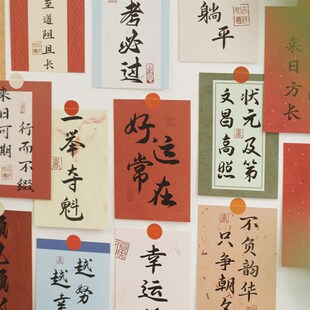 至道阻且长
考必过
躺平
来日方长
行而不缀
来日可期
一举夺魁
好运
常在
状元及第
文昌高照
越努
越幸
幸运
不负韵华
只争朝